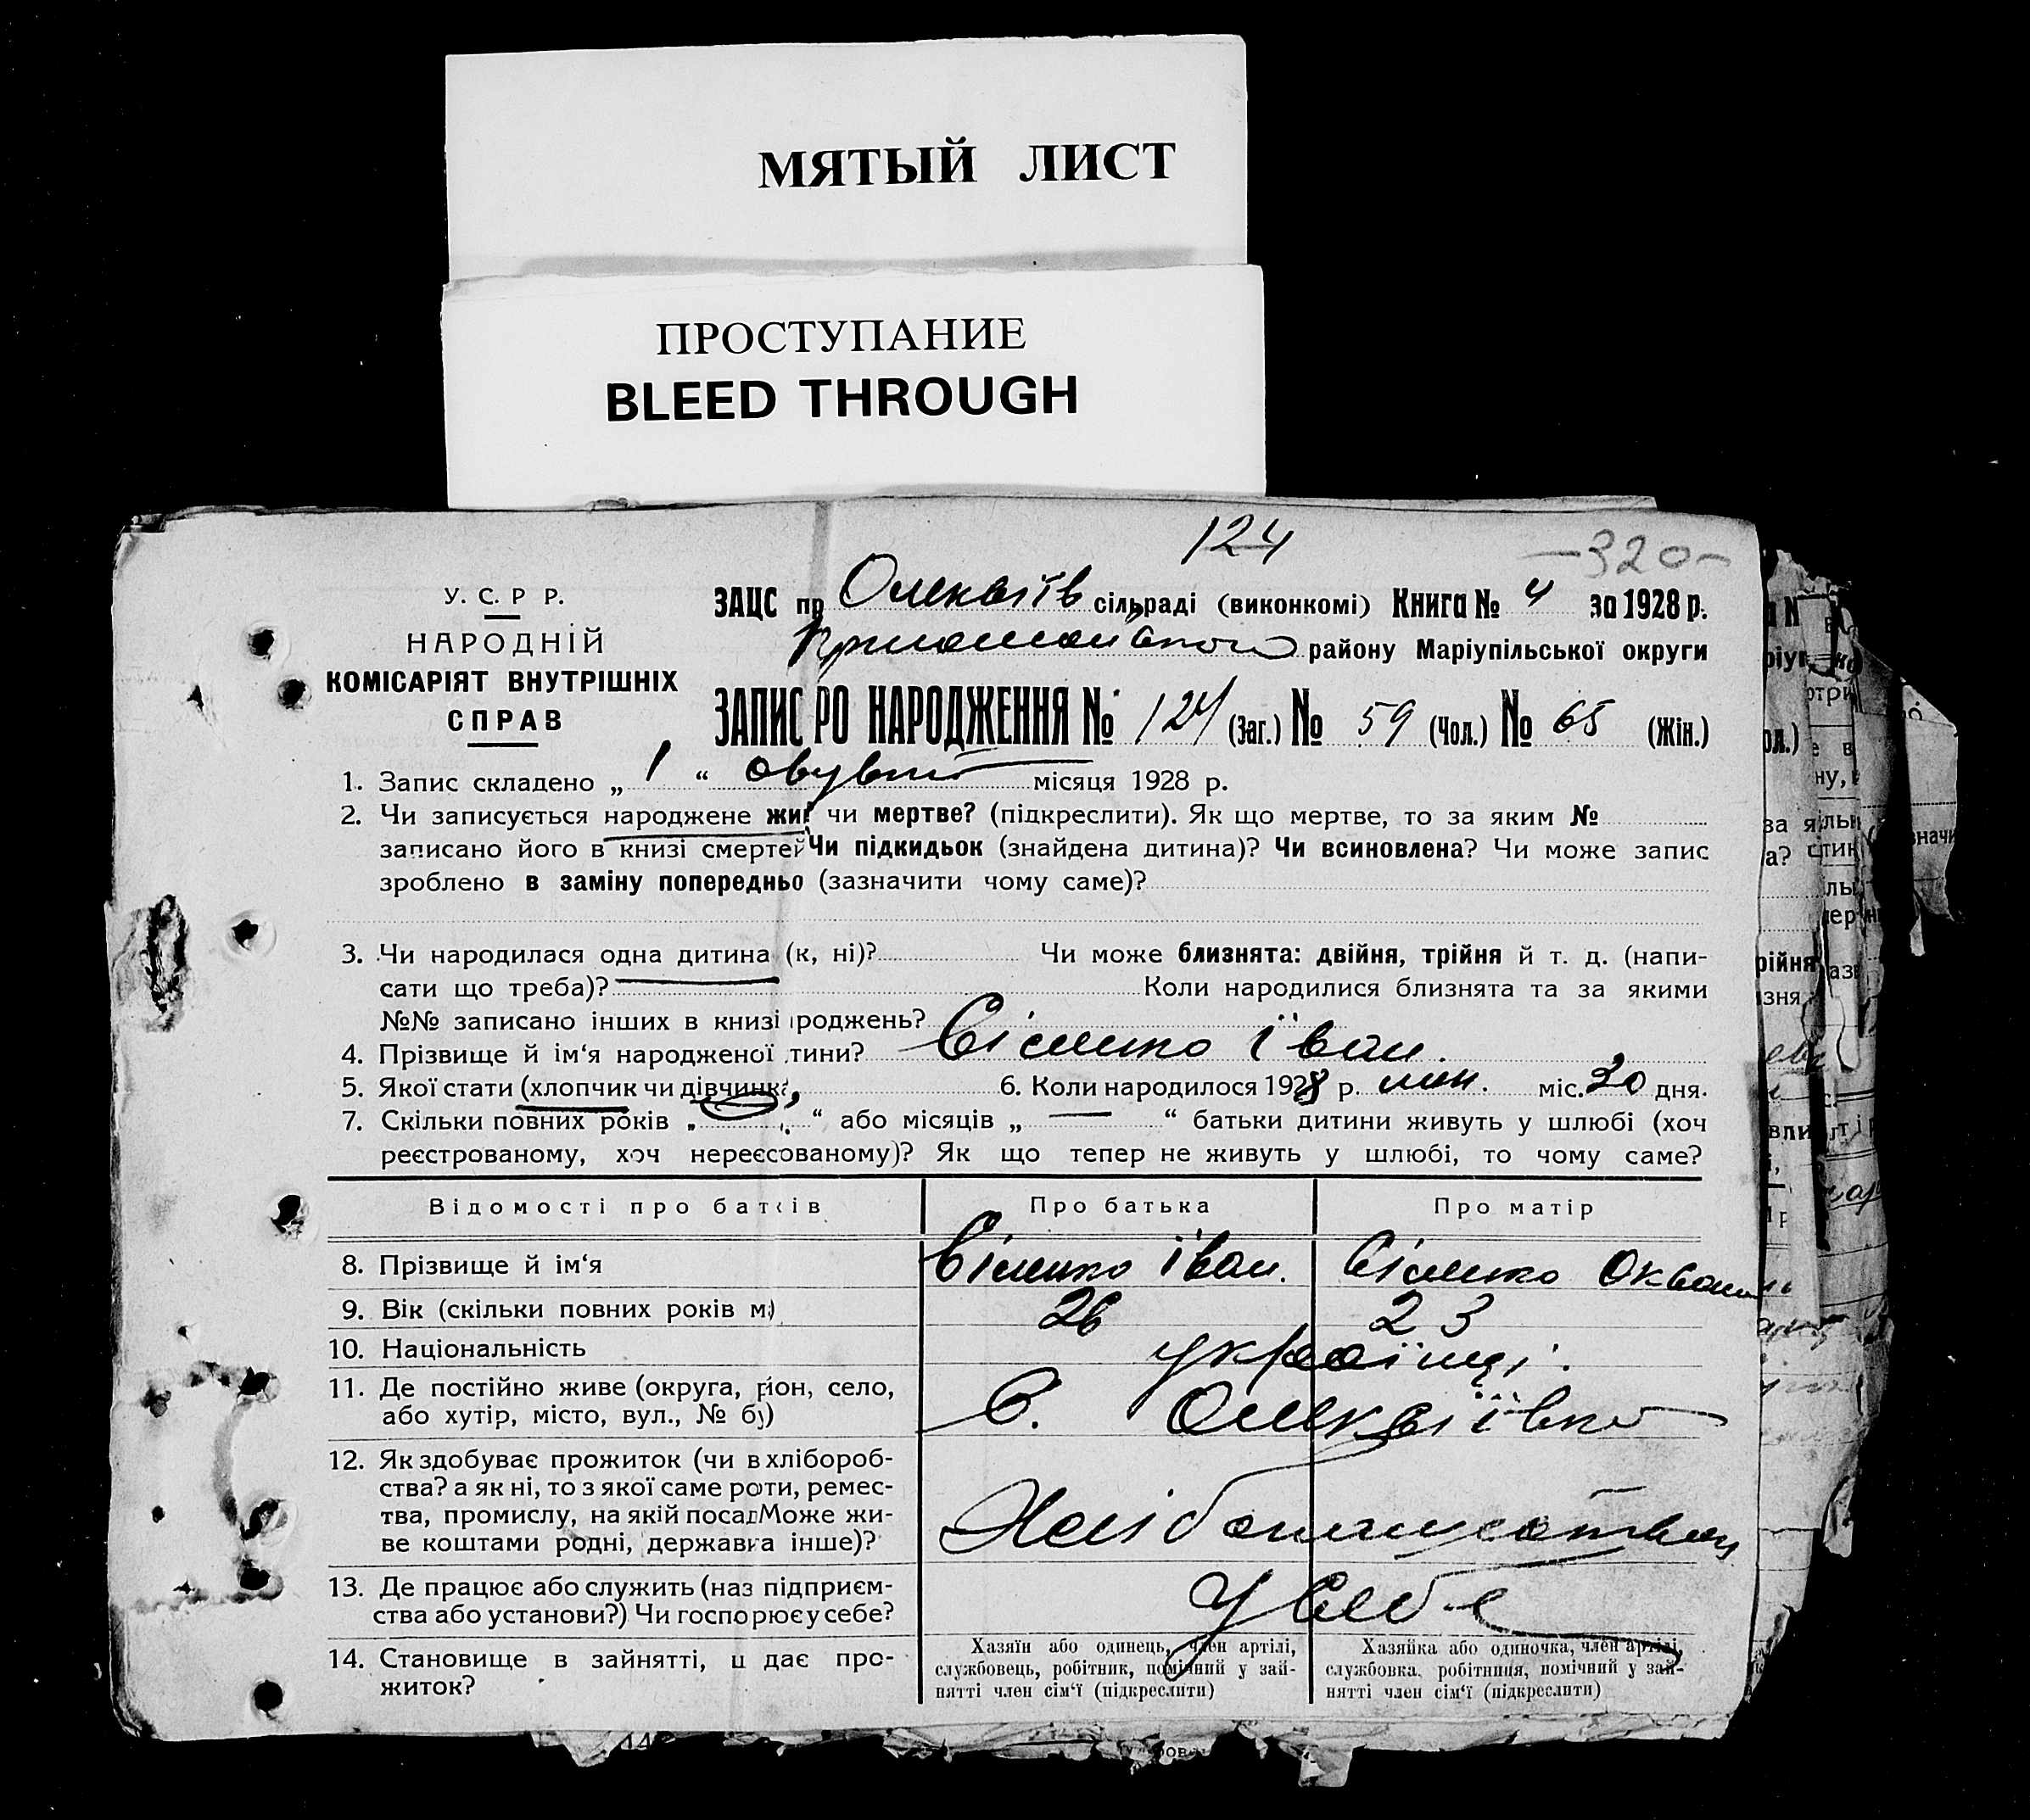 МЯТЫЙ ЛИСТ
ПРОСТУПАНИЕ
BLEED THROUGH
124
-320-
У. С. Р Р.
НАРОДНІЙ
КОМІСАРІЯТ ВНУТРІШНІХ
СПРАВ
ЗАЦС пр Олексіїв сільраді (виконкомі) Книга № 4 за 1928 р.
району Маріупільської округи
ЗАПИС РО НАРОДЖЕННЯ № 124 (Заг.) № 59 (Чол.) № 65 (Жін.)
1. Запис складено „ 1 “ місяця 1928 р.
2. Чи записується народжене жи чи мертве? (підкреслити). Як що мертве, то за яким №
записано його в книзі смертей Чи підкидьок (знайдена дитина)? Чи всиновлена? Чи може запис
зроблено в заміну попередньо (зазначити чому саме)?
3. Чи народилася одна дитина (к, ні)? Чи може близнята: двійня, трійня й т. д. (напи-
сати що треба)? Коли народилися близнята та за якими
№№ записано інших в книзі роджень?
4. Прізвище й ім‘я народженої тини? Сісмико Іван.
5. Якої стати (хлопчик чи дівчинка, 6. Коли народилося 1928 р. лип. міс. 30 дня.
7. Скільки повних років „ “ або місяців „ — “ батьки дитини живуть у шлюбі (хоч
реєстрованому, хоч нереєсованому)? Як що тепер не живуть у шлюбі, то чому саме?
Відомості про батків Про батька Про матір
8. Прізвище й ім‘я Сісмико Іван. Сісмико Оксана
9. Вік (скільки повних років м) 26 23
10. Національність українці.
11. Де постійно живе (округа,ріон, село,
або хутір, місто, вул., № бу) С. Олексіївка
12. Як здобуває прожиток (чи в хлібороб-
ства? а як ні, то з якої саме роти, ремес-
тва, промислу, на якій посад Може жи-
ве коштами родні, державна інше)?
13. Де працює або служить (наз підприєм-
ства або установи?) Чи господрює у себе? У себе
14. Становище в зайнятті, щ дає про-
житок?
Хазяїн або одинець, член артілі,
службовець, робітник, помічний у зай-
нятті член сім‘ї (підкреслити)
Хазяйка або одиночка, член артілі,
службовка, робітниця, помічний у зай-
нятті член сім‘ї (підкреслити)